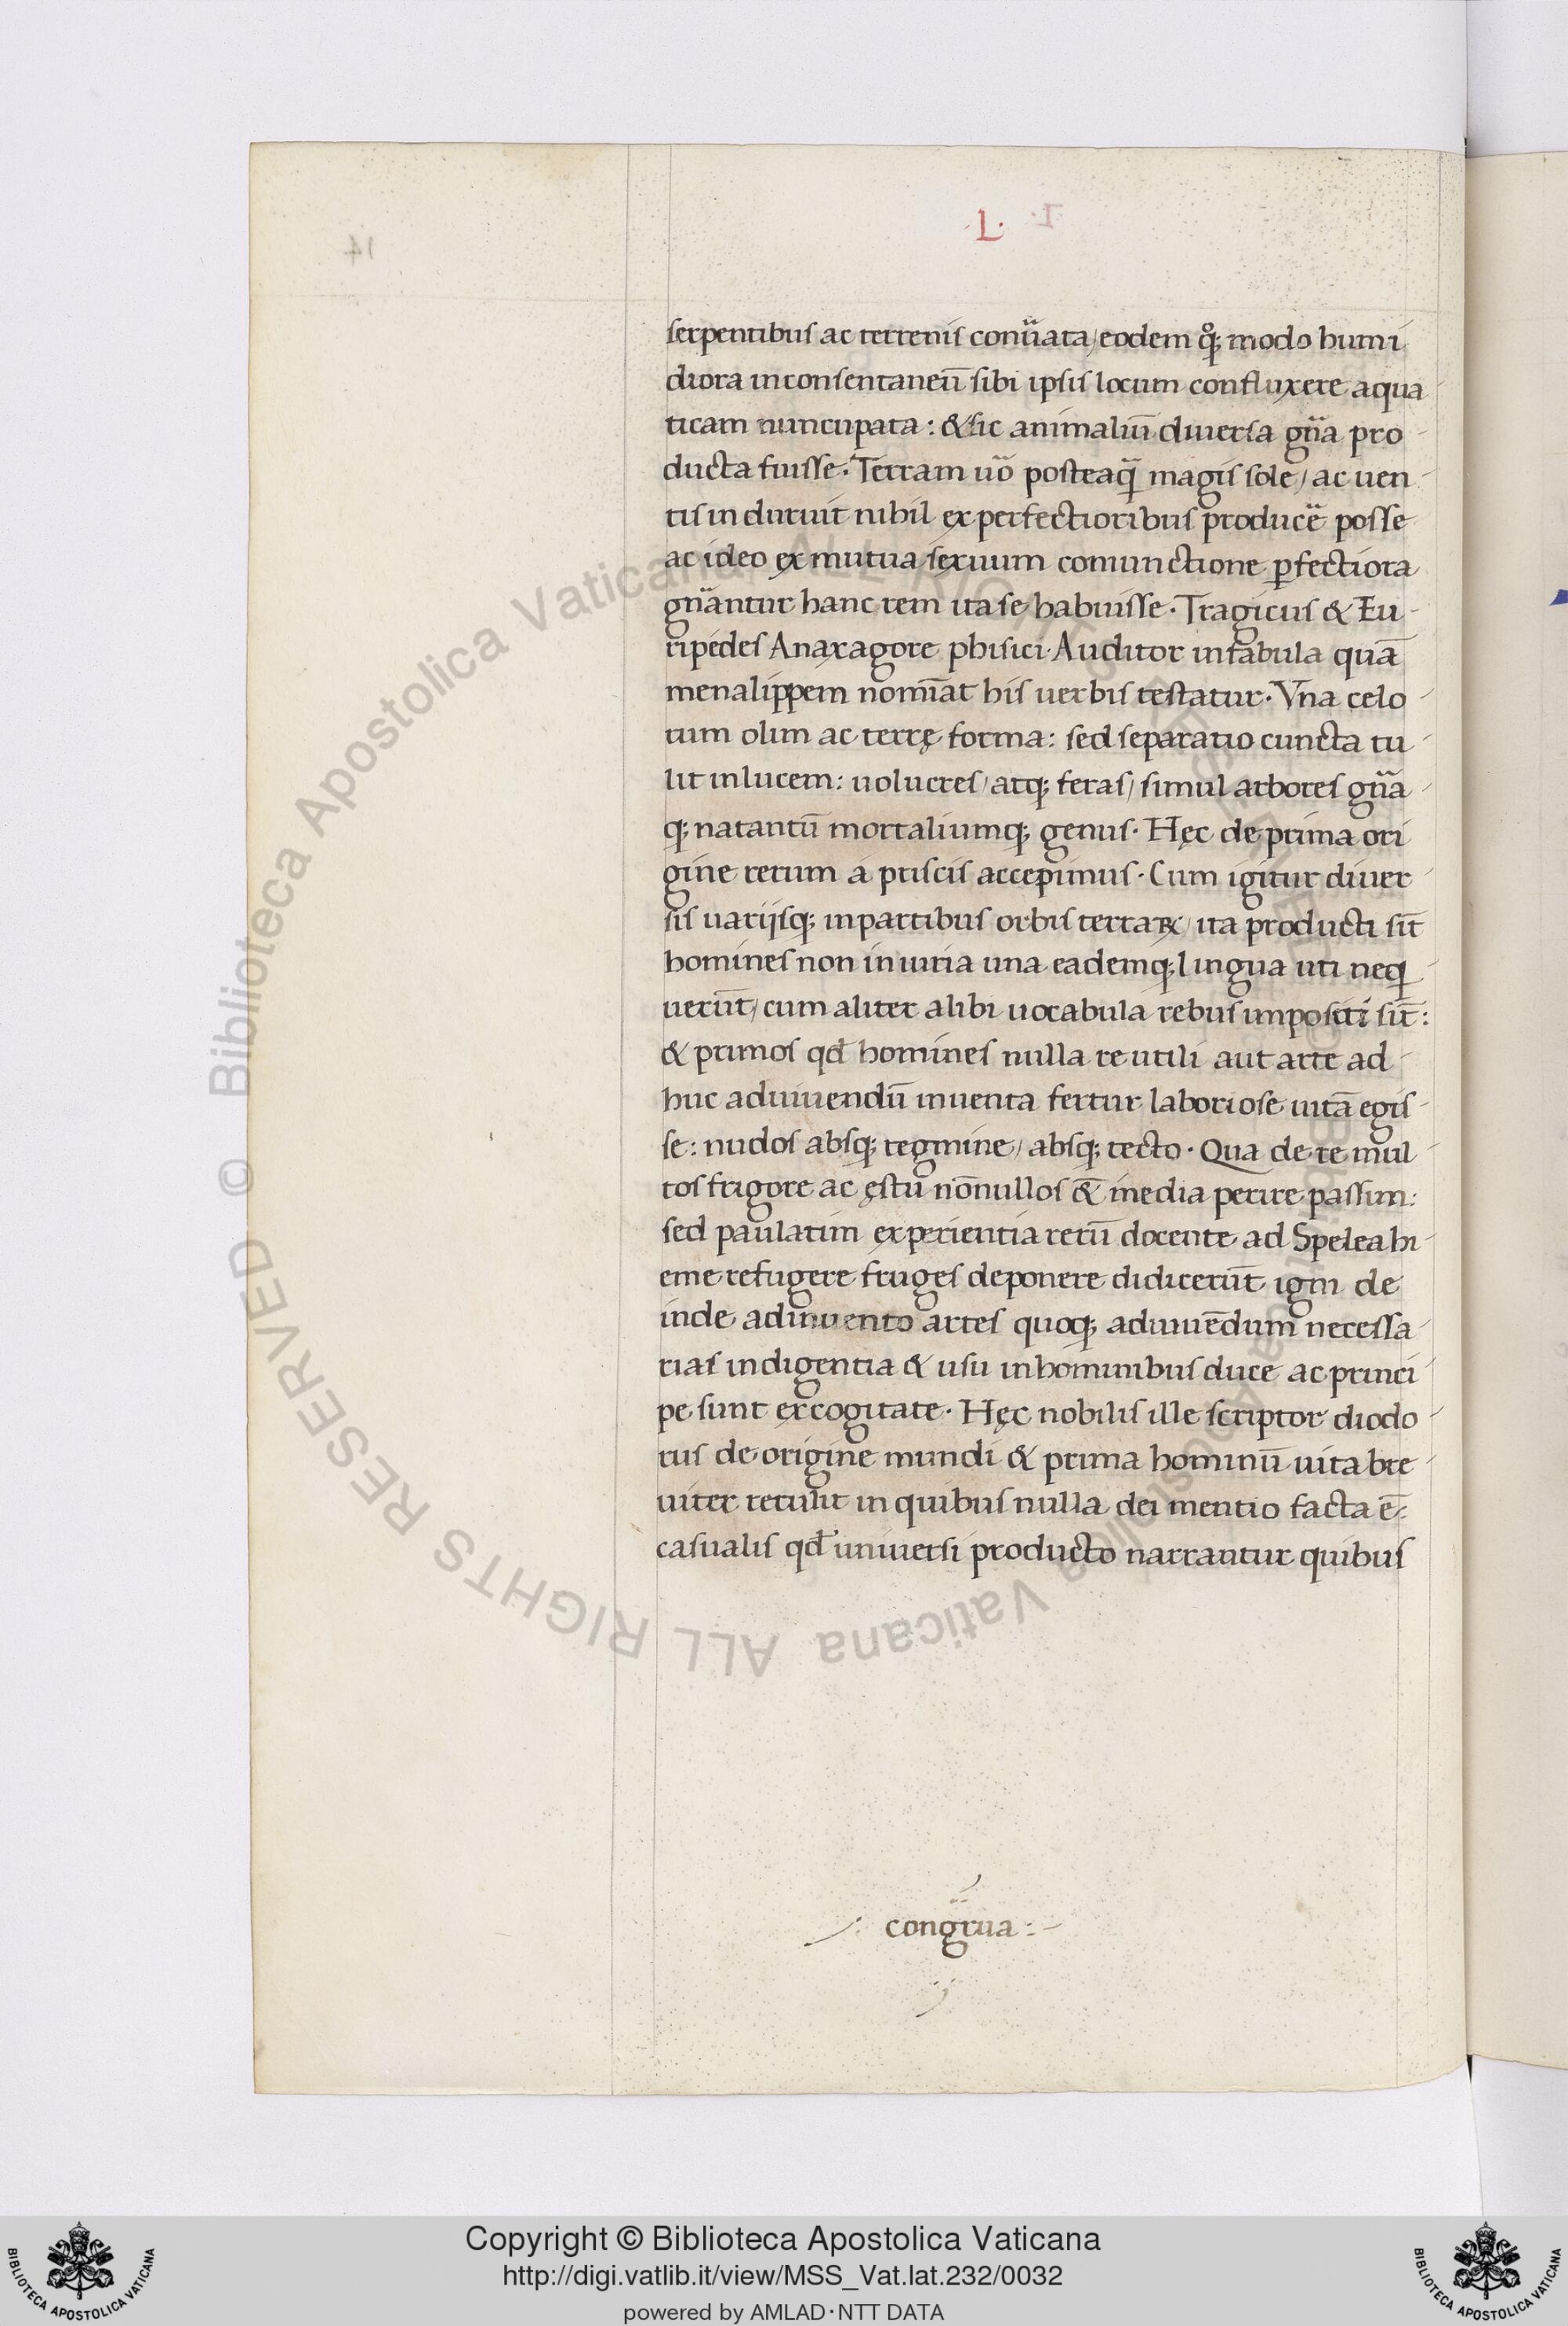 ·L·
serpentibus ac terrenis conũata/ eodem qͦꝫ modo humi
diora in consentaneū sibi ipsis locum confluxere aqua
ticam nuncupata: & sic animaliū diuersa gña pro
ducta fuisse. Terram uõ posteaq̃ magis sole/ ac uen
tis induruit nihil ex perfectioribus producẽ posse
ac ideo ex mutua sexuum comunctione ꝑfectiora
gñantur hanc rem ita se habuisse. Tragicus & Eu
ripedes Anaxagore phisici Auditor in fabula quā
menalippem nomīat his uerbis testatur. Vna celo
rum olim ac terrę forma: sed separatio cuncta tu
lit in lucem: uolucres/ atqꝫ feras/ simul arbores gña
qꝫ natantū mortaliumqꝫ genus. Hęc de prima ori
gine rerum a priscis accepimus. Cum igitur diuer
sis uarijsqꝫ in partibus orbis terraꝝ/ ita producti sīt
homines non iniuria una eademqꝫ lingua uti neq̃
uerūt/ cum aliter alibi uocabula rebus impositi sīt:
& primos qd̃ homines nulla re utili aut arte ad
huc ad uiuendū inuenta fertur laboriose uitā egis
se: nudos absqꝫ tegmine/ absqꝫ tecto. Qua de re mul
tos frigore ac ęstu nōnullos &̄ media perire passim:
sed paulatim experientia rerū docente ad Spelea hi
eme refugere fruges deponere didicerūt igni de
inde adinuento artes quoqꝫ ad uiuēdum necessa
rias indigentia & usu in hominibus duce ac princi
pe sunt excogitate. Hęc nobilis ille scriptor diodo
rus de origine mundi & prima hominū uita bre
uiter retulit in quibus nulla dei mentio facta ē:
casualis qd̃ uniuersi producto narrantur quibus
congrua:
© Biblioteca Apostolica Vaticana ALL RIGHTS RESERVED
Copyright © Biblioteca Apostolica Vaticana
http://digi.vatlib.it/view/MSS_Vat.lat.232/0032
powered by AMLAD·NTT DATA
BIBLIOTECA APOSTOLICA VATICANA
BIBLIOTECA APOSTOLICA VATICANA